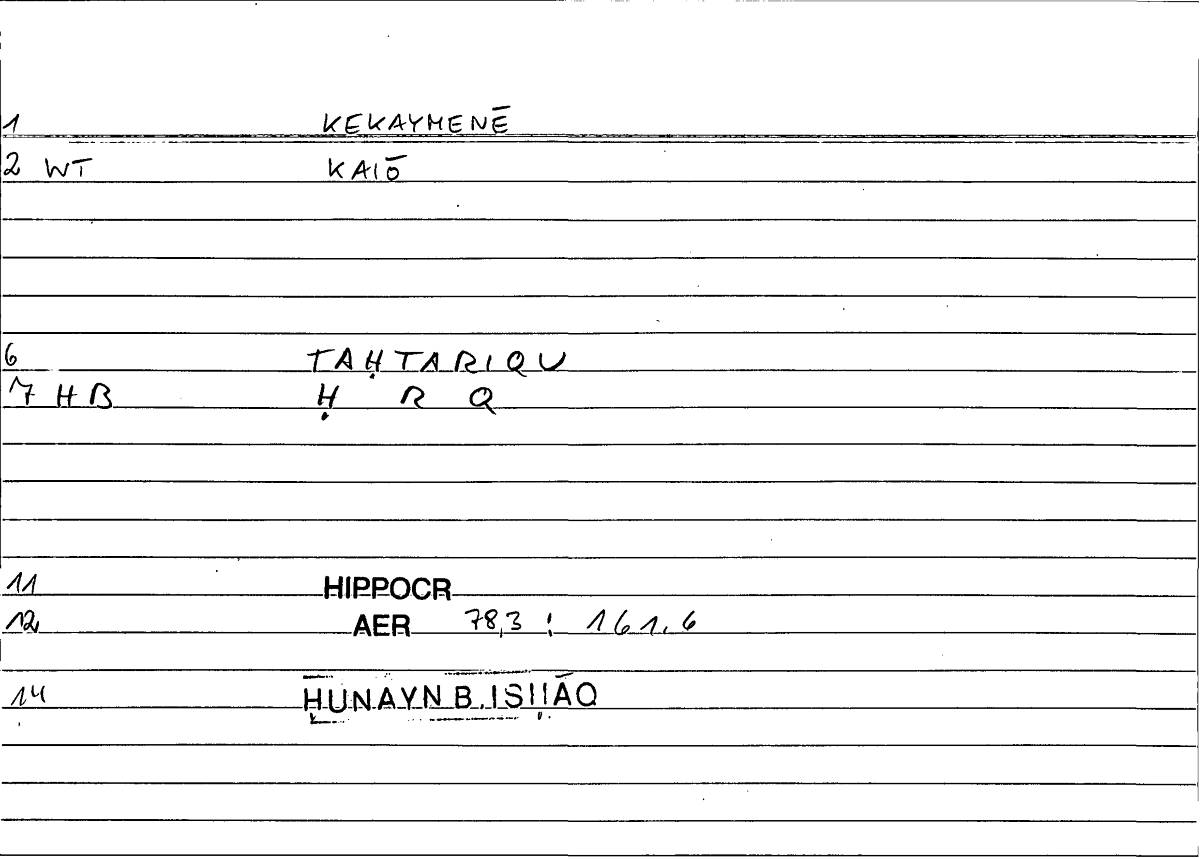 1 KEKAYMENĒ
2 WT KAIŌ
6 TAḤTARIQU
7 HB Ḥ R Q
11 HIPPOCR
12 AER 78,3 ; 161,6
14 ḤUNAYN B. ISḤĀQ